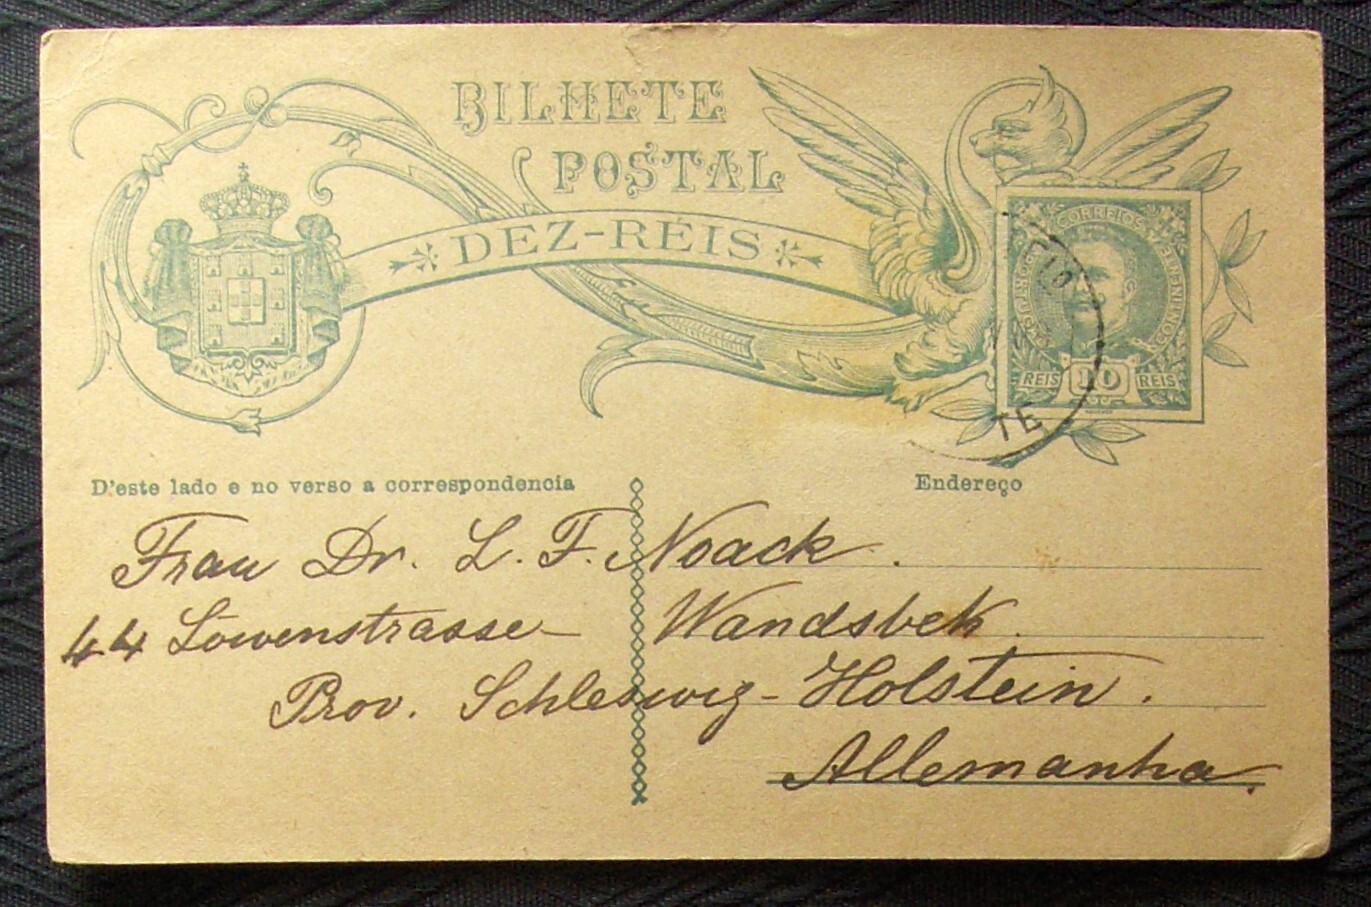 BILHETE
POSTAL
DEZ-RÉIS
CORREIOS
CONTINENTE
REIS 10 REIS
TE
D'este lado e no verso a correspondencia
Endereço
Frau Dr. L. F. Noack.
44 Löwenstrasse - Wandsbek.
Prov. Schleswig-Holstein.
Allemanha.